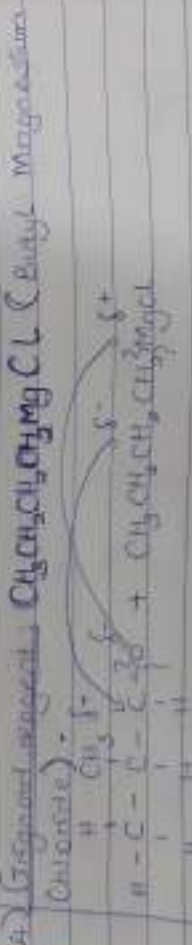 A) Grignard reagent: CH₃CH₂CH₂CH₂MgCl (Butyl Magnesium
Chloride).
H CH₃ δ+ δ- δ- δ+
H - C - C - C = O + CH₃CH₂CH₂CH₂MgCl
H H H